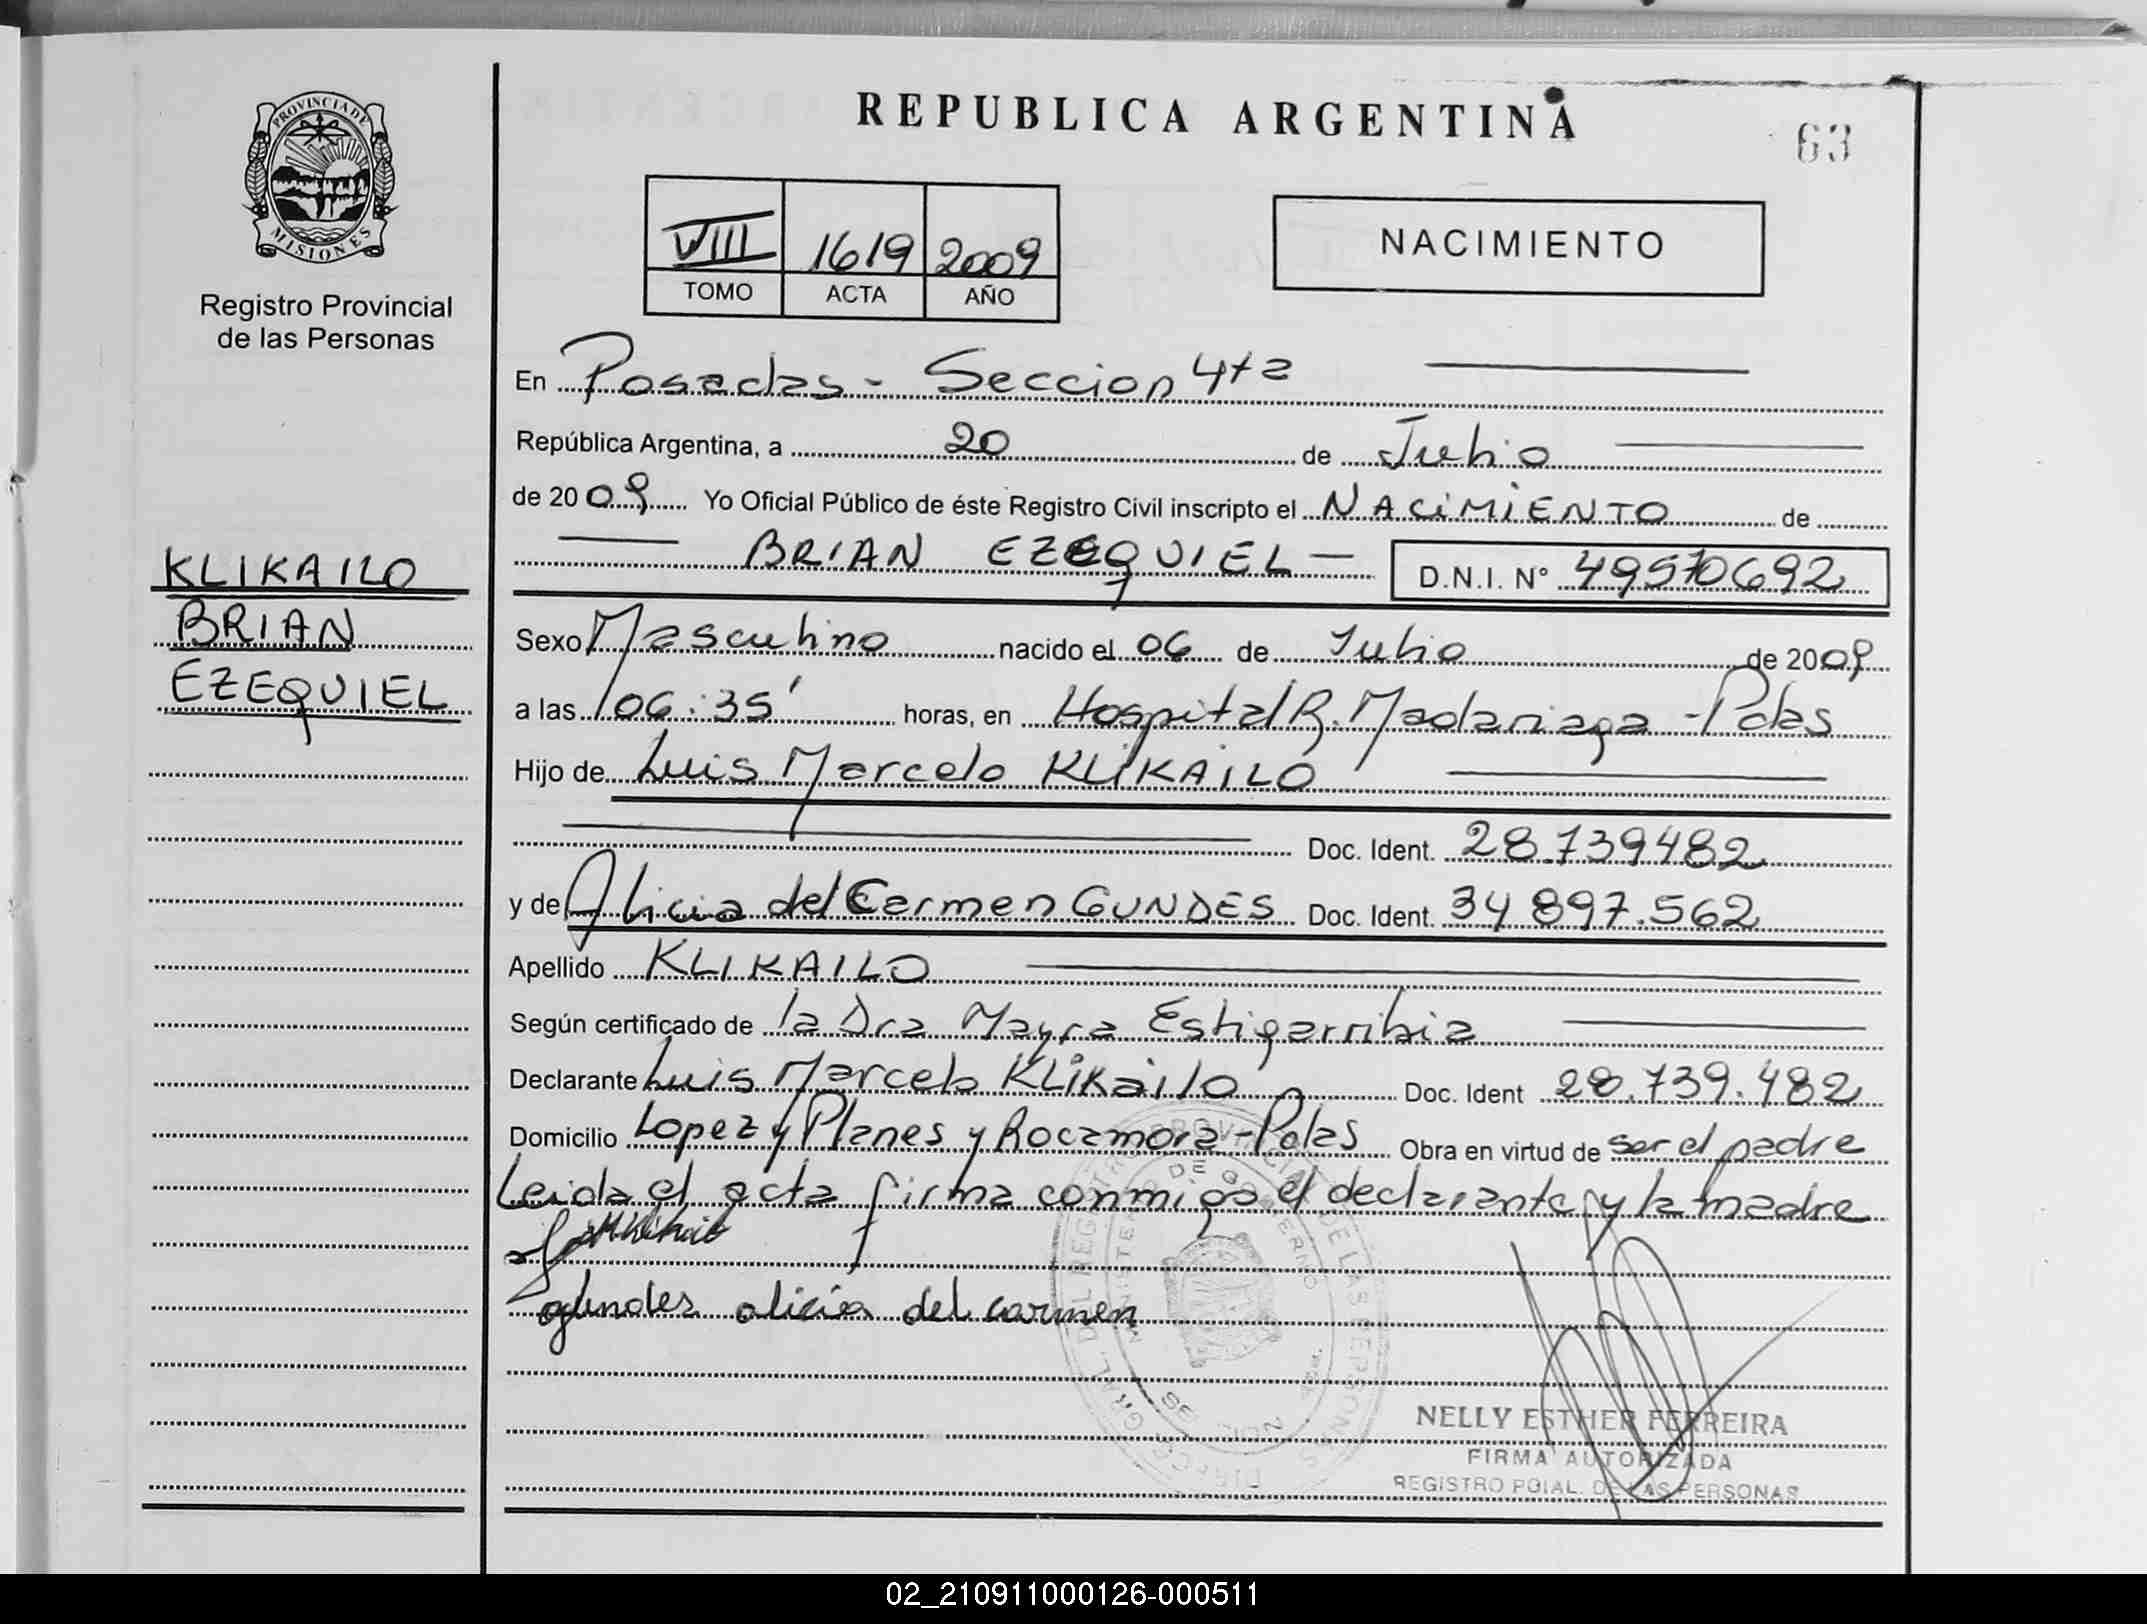 REPUBLICA ARGENTINA
63
PROVINCIA DE
MISIONES
Registro Provincial
de las Personas
VIII 1619 2009
TOMO ACTA AÑO
NACIMIENTO
En Posadas - Seccion 4ta
República Argentina, a 20 de Julio
de 2009 Yo Oficial Público de éste Registro Civil inscripto el NACIMIENTO de
BRIAN EZEQUIEL D.N.I. N° 49570692
KLIKAILO
BRIAN
EZEQUIEL
Sexo Masculino nacido el 06 de Julio de 2009
a las 06:35' horas, en Hospital R. Madariaga - Pdas
Hijo de Luis Marcelo KLIKAILO
Doc. Ident. 28.739482
y de Alicia del Carmen GUNDES Doc. Ident. 34 897.562
Apellido KLIKAILO
Según certificado de la Dra Mayra Estigarribia
Declarante Luis Marcelo KLIKAILO Doc. Ident 28.739.482
Domicilio Lopez y Planes y Rocamora - Pdas Obra en virtud de ser el padre
Leida el acta firma conmigo el declarante y la madre
alicia del carmen
NELLY ESTHER FERREIRA
FIRMA AUTORIZADA
REGISTRO PCIAL. DE LAS PERSONAS
02_210911000126-000511